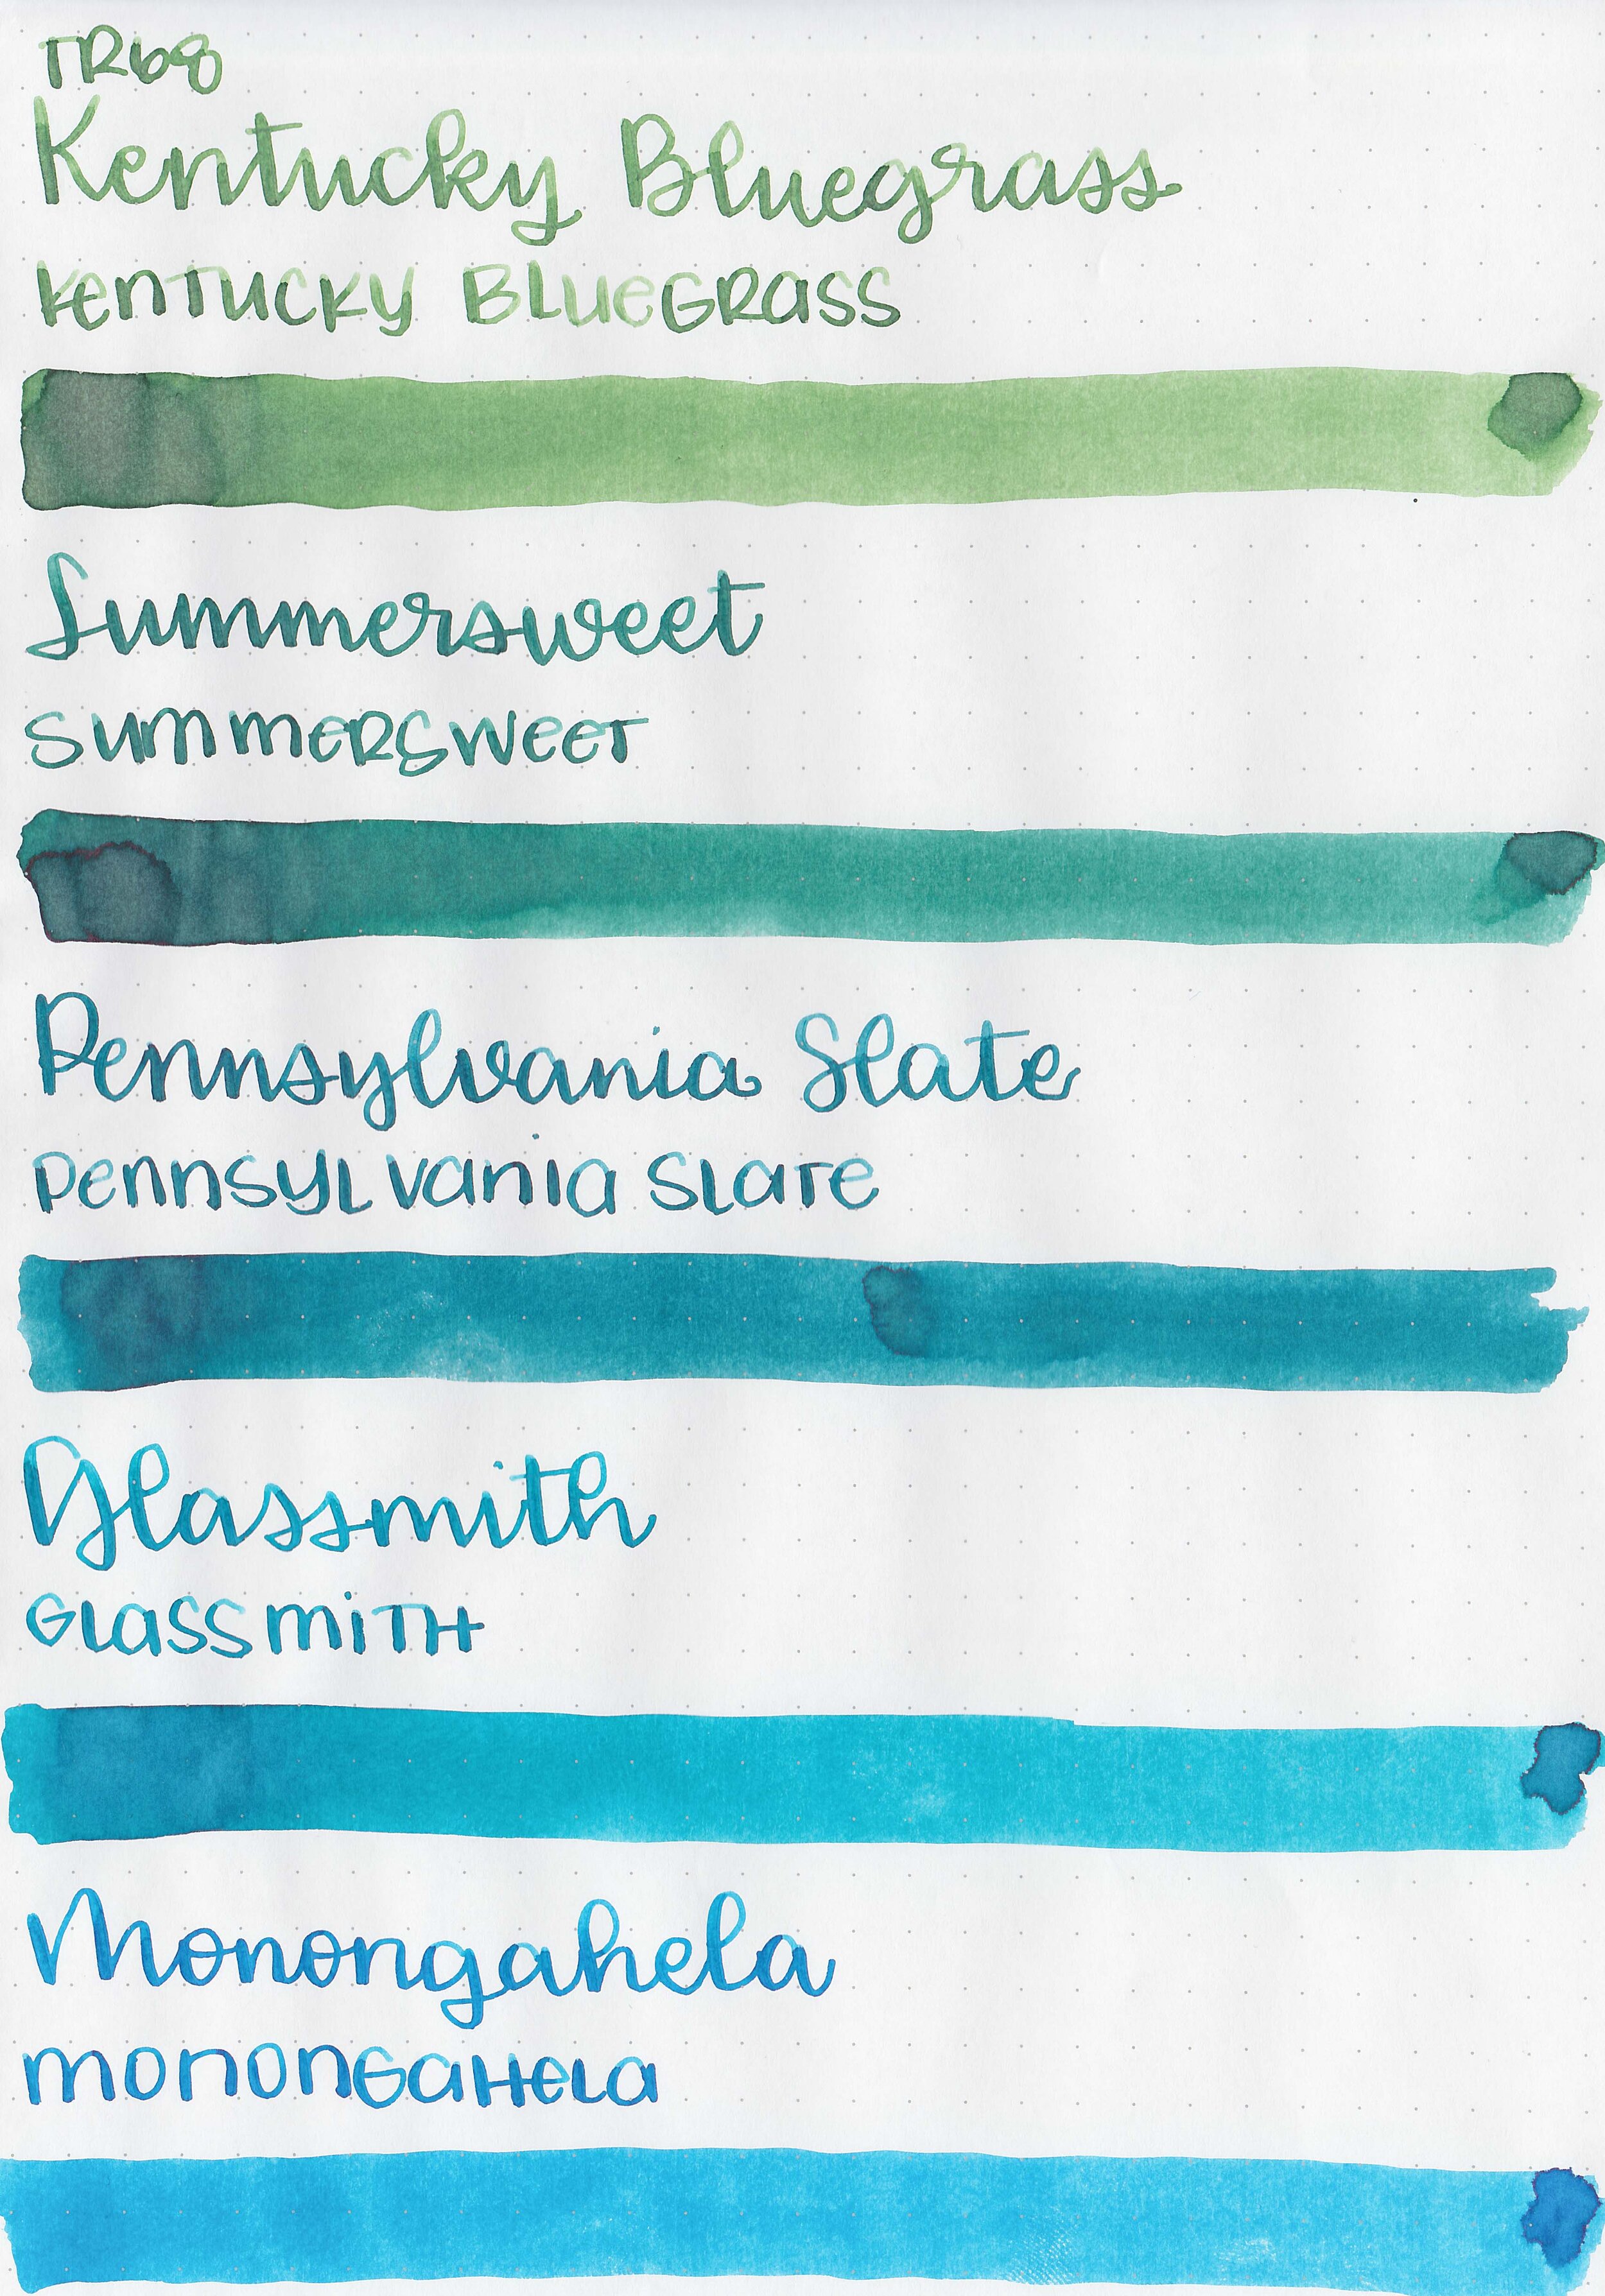 TR68
Kentucky Bluegrass
KENTUCKY BLUEGRASS
Summersweet
SUMMERSWEET
Pennsylvania Slate
PENNSYLVANIA SLATE
Glassmith
GLASSMITH
Monongahela
MONONGAHELA